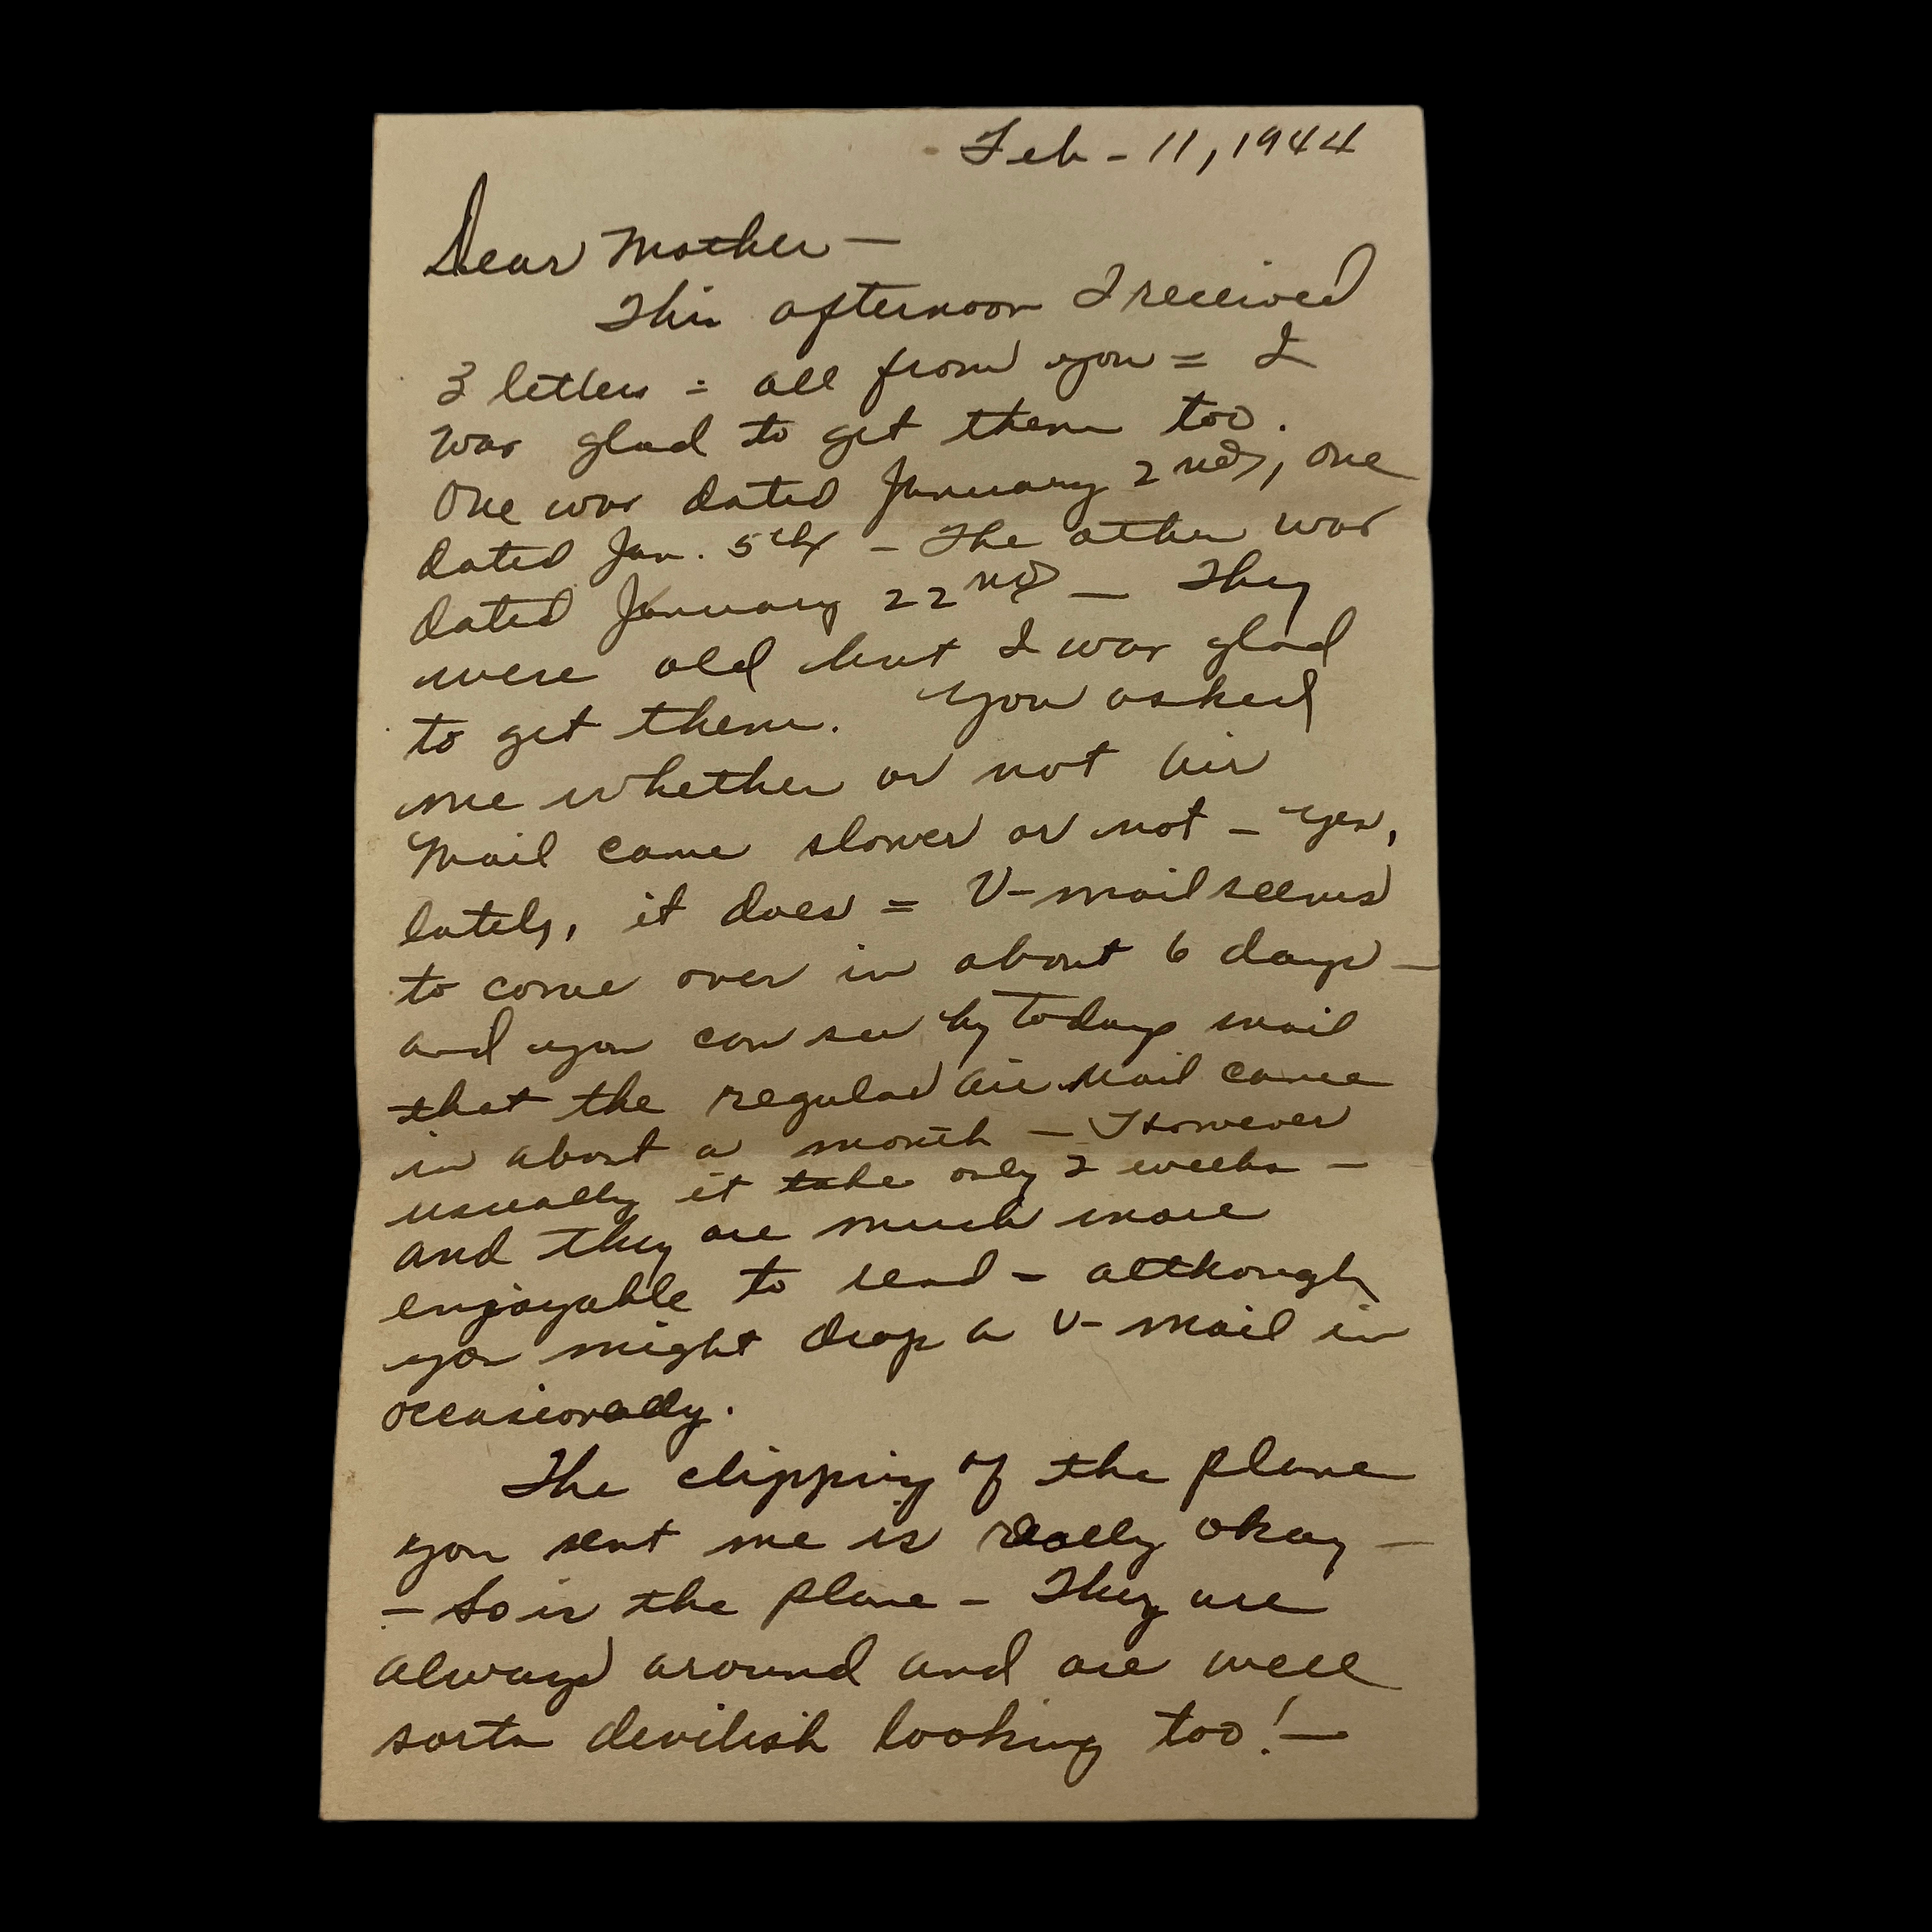 Feb - 11, 1944
Dear Mother —
This afternoon I received
3 letters = all from you = I
was glad to get them too.
One was dated January 2nd, one
dated Jan. 5th - The other was
dated January 22nd — They
were old but I was glad
to get them. You asked
me whether or not air
mail came slower or not - Yes,
lately, it does = V-mail seems
to come over in about 6 days —
and you can see by todays mail
that the regular air mail came
in about a month — However
usually it take only 2 weeks —
and they are much more
enjoyable to read - although
you might drop a V-mail in
occasionally.
The clipping of the plane
you sent me is really okay —
- So is the plane - They are
always around and are well
sorta devilish looking too! —